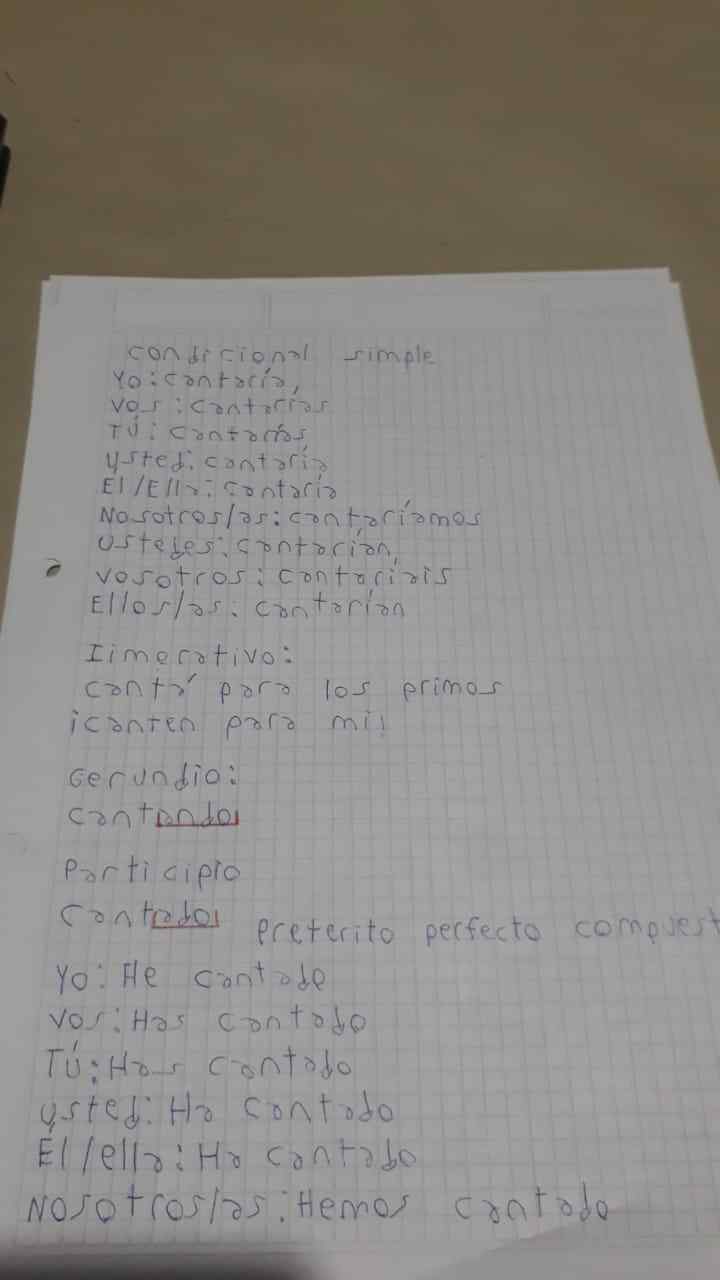 condicional simple
Yo: cantaría,
Vos: cantarías
TÚ: cantarías
Usted: cantaría
El/Ella: cantaría
Nosotros/as: cantaríamos
Ustedes: cantarían,
Vosotros: cantaríais
Ellos/as: cantarían
Iimerativo:
cantá para los primos
¡canten para mi!
Gerundio:
cantando
Participio
cantado
preterito perfecto compuest
Yo: He cantado
Vos: Has cantado
TÚ: Has cantado
Usted: Ha cantado
Él/ella: Ha cantado
Nosotros/as: Hemos cantado